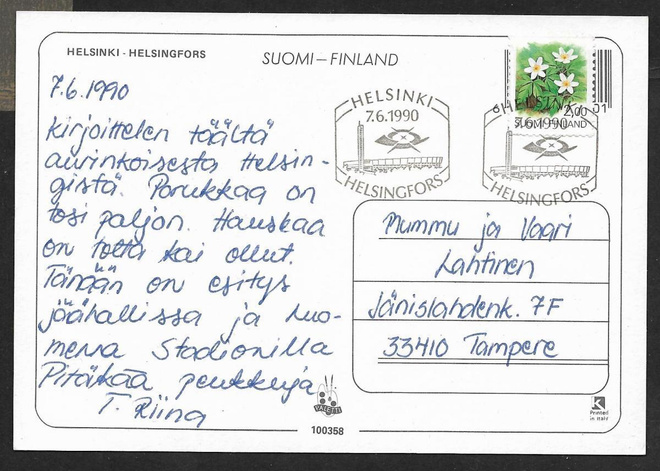 HELSINKI - HELSINGFORS
SUOMI – FINLAND
7.6.1990
Kirjoittelen täältä
aurinkoisesta Helsin-
gistä. Porukkaa on
tosi paljon. Hauskaa
on totta kai ollut.
Tänään on esitys
jäähallissa ja huo-
menna Stadionilla
Pitäkää peukkuja
T. Riina
HELSINKI
7.6.1990
HELSINGFORS
HELSINKI
7.6.1990
HELSINGFORS
2,00
SUOMI FINLAND
01
Mummu ja Vaari
Lahtinen
Jänislahdenk. 7F
33410 Tampere
PALETTI
100358
K
Printed
in Italy